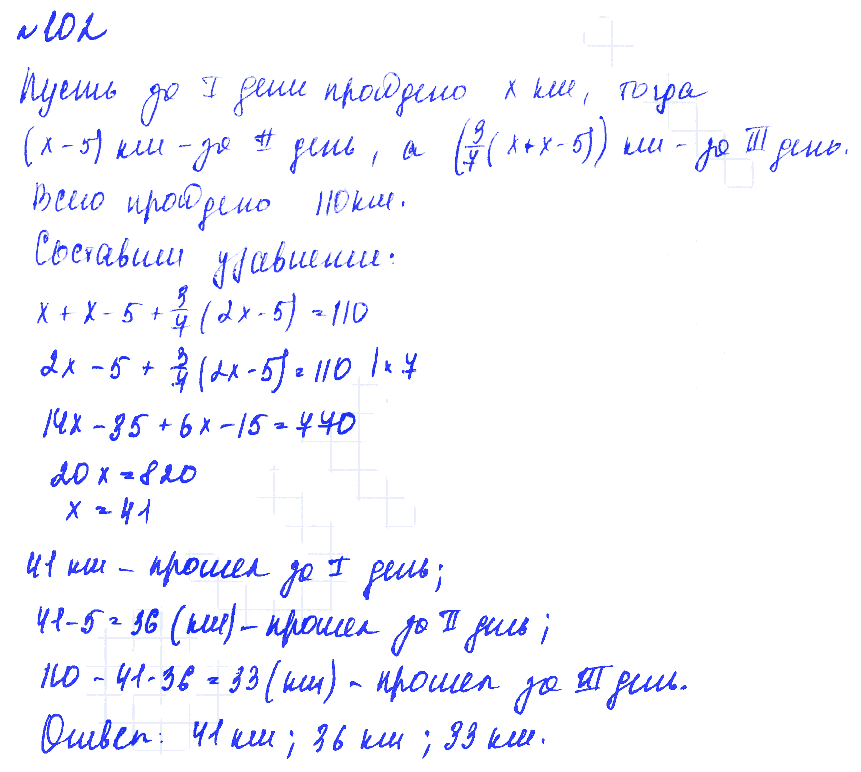 №102
Пусть до I дени пройдено x км, тогда
(x-5) км - до II день, а (3/7(x+x-5)) км - до III день.
Всего пройдено 110 км.
Составим уравнение:
x + x - 5 + 3/7(2x-5) = 110
2x - 5 + 3/7(2x-5) = 110 | × 7
14x - 35 + 6x - 15 = 770
20x = 820
x = 41
41 км - прошел до I день;
41-5 = 36 (км) - прошел до II день;
110 - 41-36 = 33 (км) - прошел до III день.
Ответ: 41 км; 36 км; 33 км.